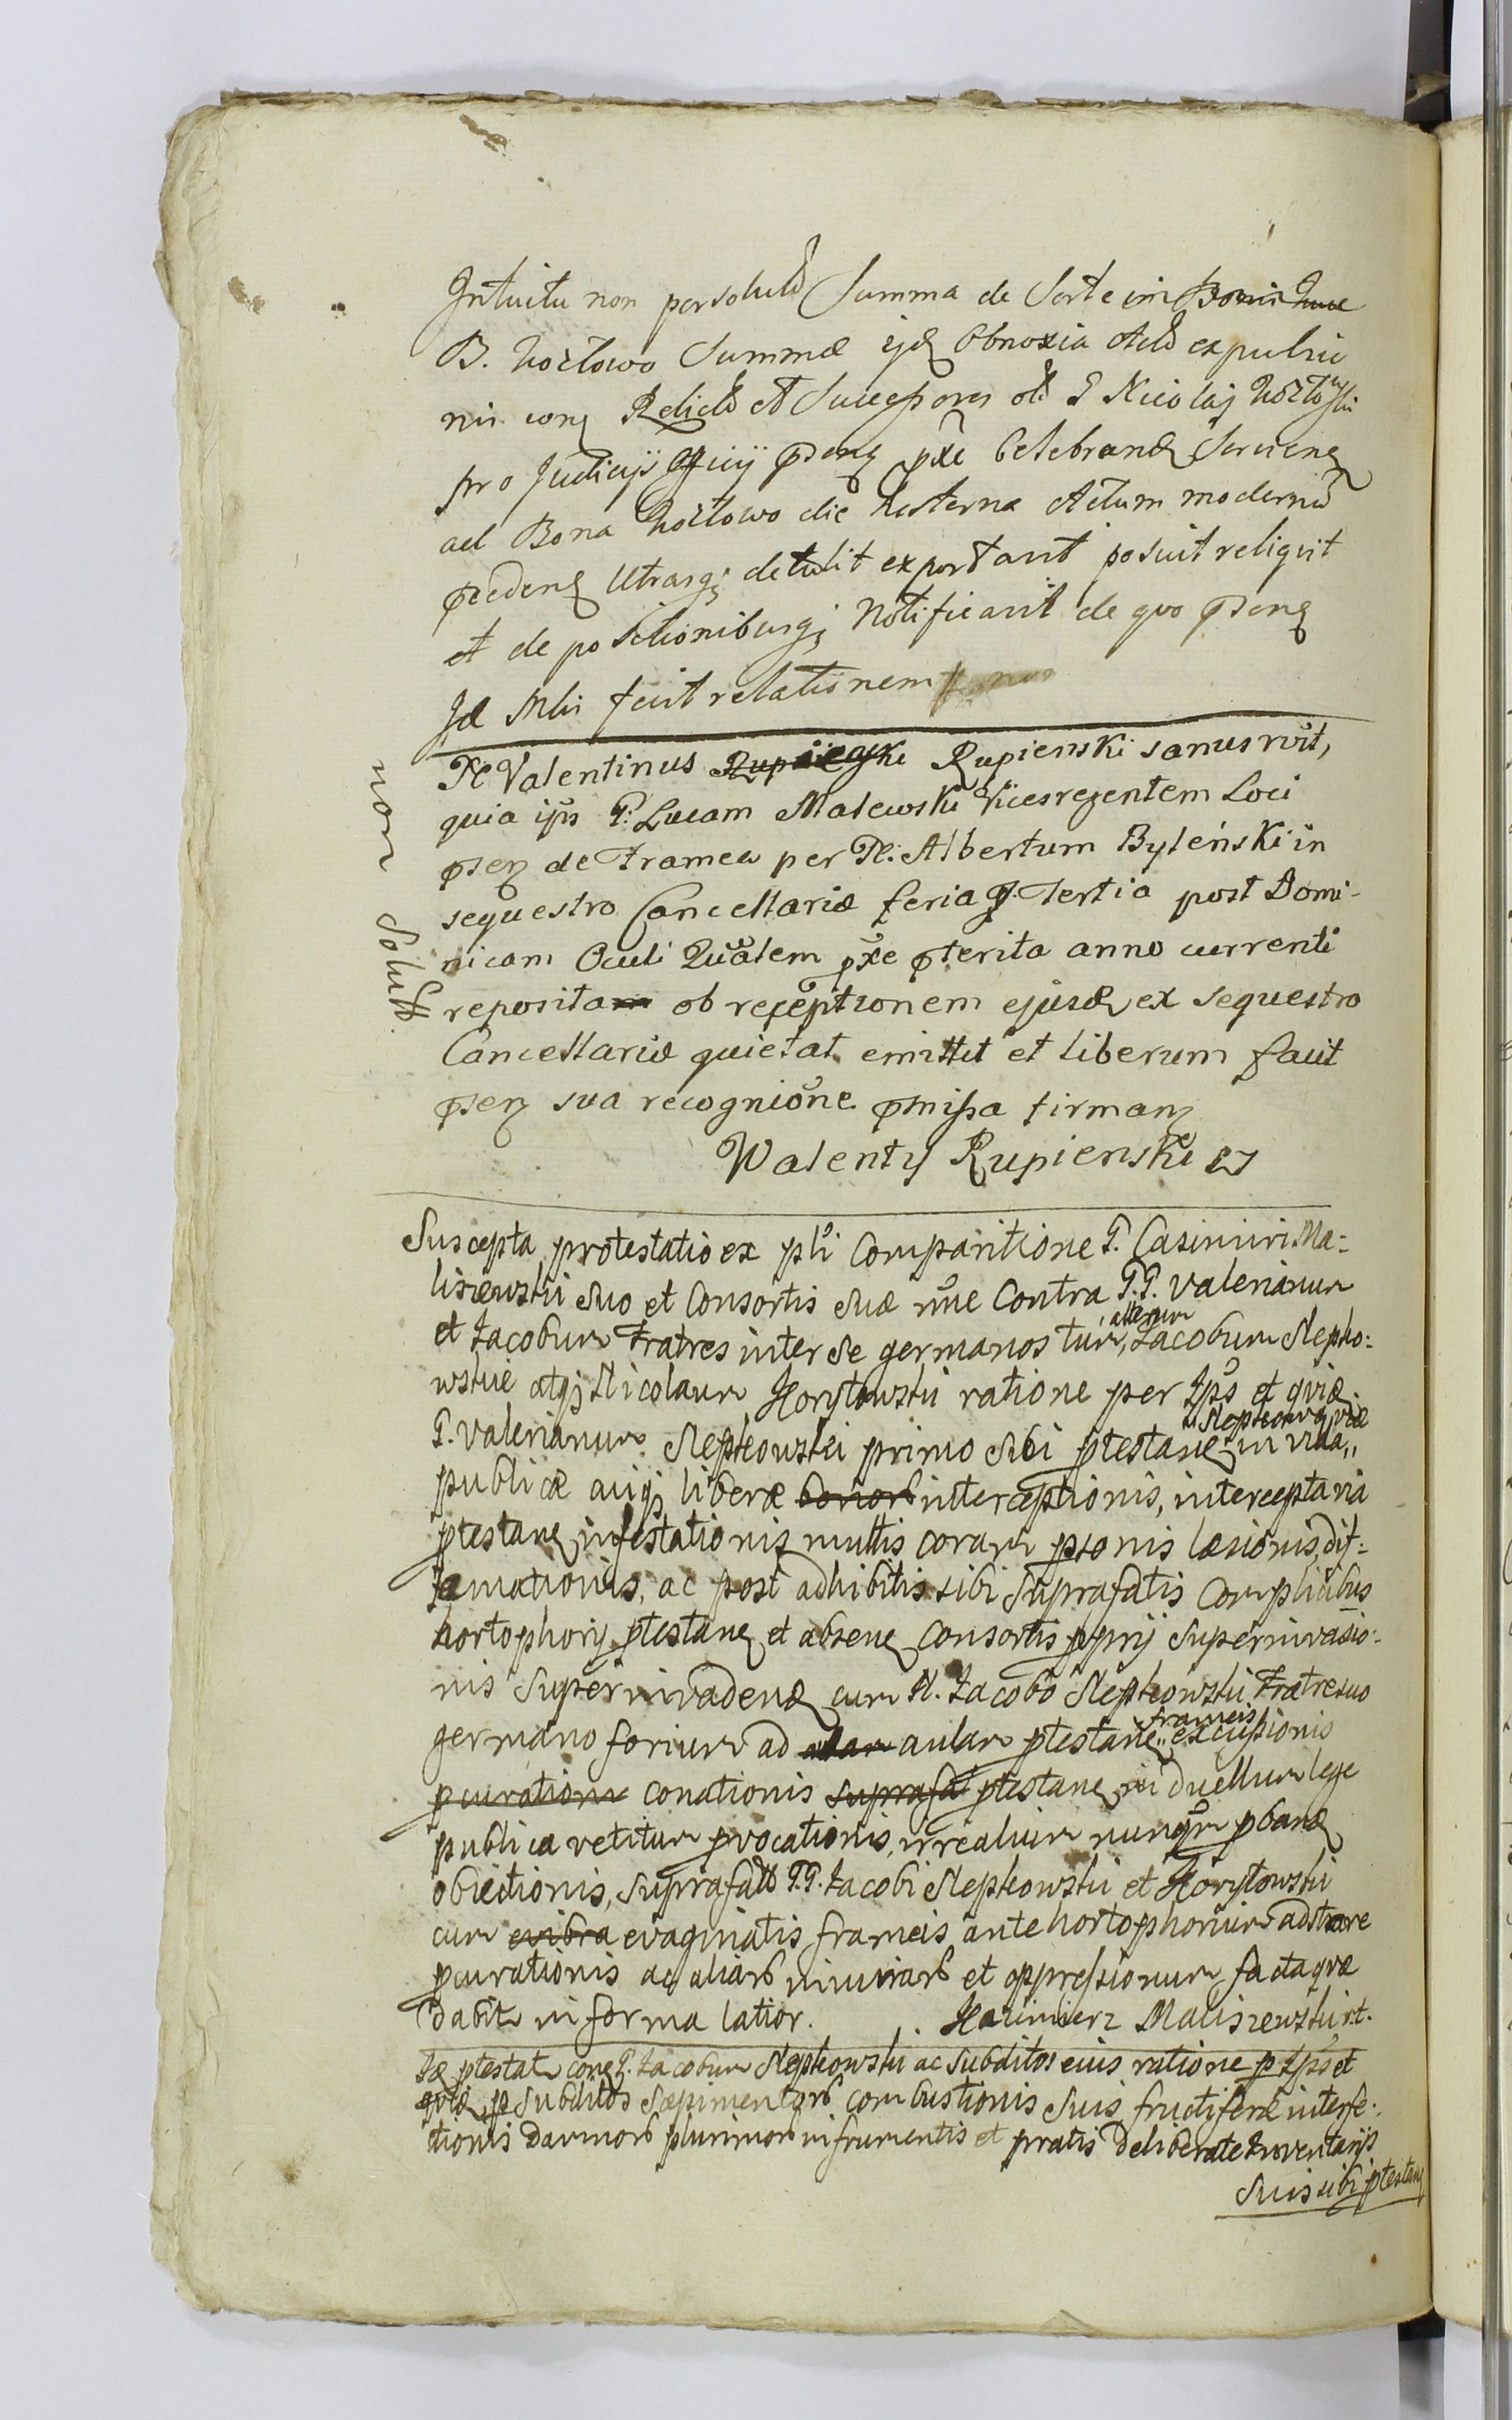 Intuitu non persolut Summa de Sorte in Bonis
B. Kozłowo Summæ ejd Obnoxia Act expulsio
nis con Relict et Successores ol G Nicolaj Kozłowski
pro Judicijs Officij psen pxe Celebrand Servien
ad Bona Kozłowo die hesterna Actum modernu
pceden Utrasq detulit exportavit posuit reliquit
et de positionibusq Notificavit de quo psen
Id Mln fecit relationem
Gl Valentinus Rupienski sanus rvit,
quia ips G: Lucam Malewski Vicesregentem Loci
psen de Framea per Gl. Albertum Byleński in
sequestro Cancellariæ feria Tertia post Domi-
nicam Oculi Quãlem pxe pterita anno currenti
reposita ob receptionem ejusd ex sequestro
Cancellariæ quietat emittit et liberum facit
psen sua recognione pmissa firman
Walenty Rupienski
non solutt.
Suscepta protestatio ex pli Comparitione G. Casimiri Ma-
liszewski suo et Consortis suæ nne Contra G.G. Valerianum
et Jacobum Fratres inter se germanos tum, alterum Jacobum Slepko-
wskie atq Nicolaum Korytowski ratione per Ipos et qvid
G. Valerianum Slepkowski primo sibi ptestane in via
publicæ cuiq liberæ bonor interceptionis, intercepta via
ptestane infestationis multis coram psonis læsionis, dif-
famationis, ac post adhibitis sibi suprafatis Complicibus
hortophorij ptestane et absene Consortis pprij superinvasio-
nis superinvadend cum N. Jacobo Slepkowski Fratre suo
germano forium ad aulam ptestane frameis excussionis
pcuration conationis suprafat ptestane in duellum lege
publica vetitum pvocationis, irrealium nunqm pband
obiectionis, suprafatt G.G. Jacobi Slepkowski et Korytowski
cum evibra evaginatis frameis ante hortophorium adstare
pcurationis ac aliar iniuriar et oppressionum facta quæ
dabit in forma latior. Kazimierz Maliszewski rt.
Id ptestat con G. Jacobum Slepkowski ac subditos eius ratione p Ipos et
qvid p subditos sæpimentor combustionis Suis fructiferæ interfe-
ctionis damnor plurimor in frumentis et pratis deliberate Inventarijs
Suis sibi ptestan